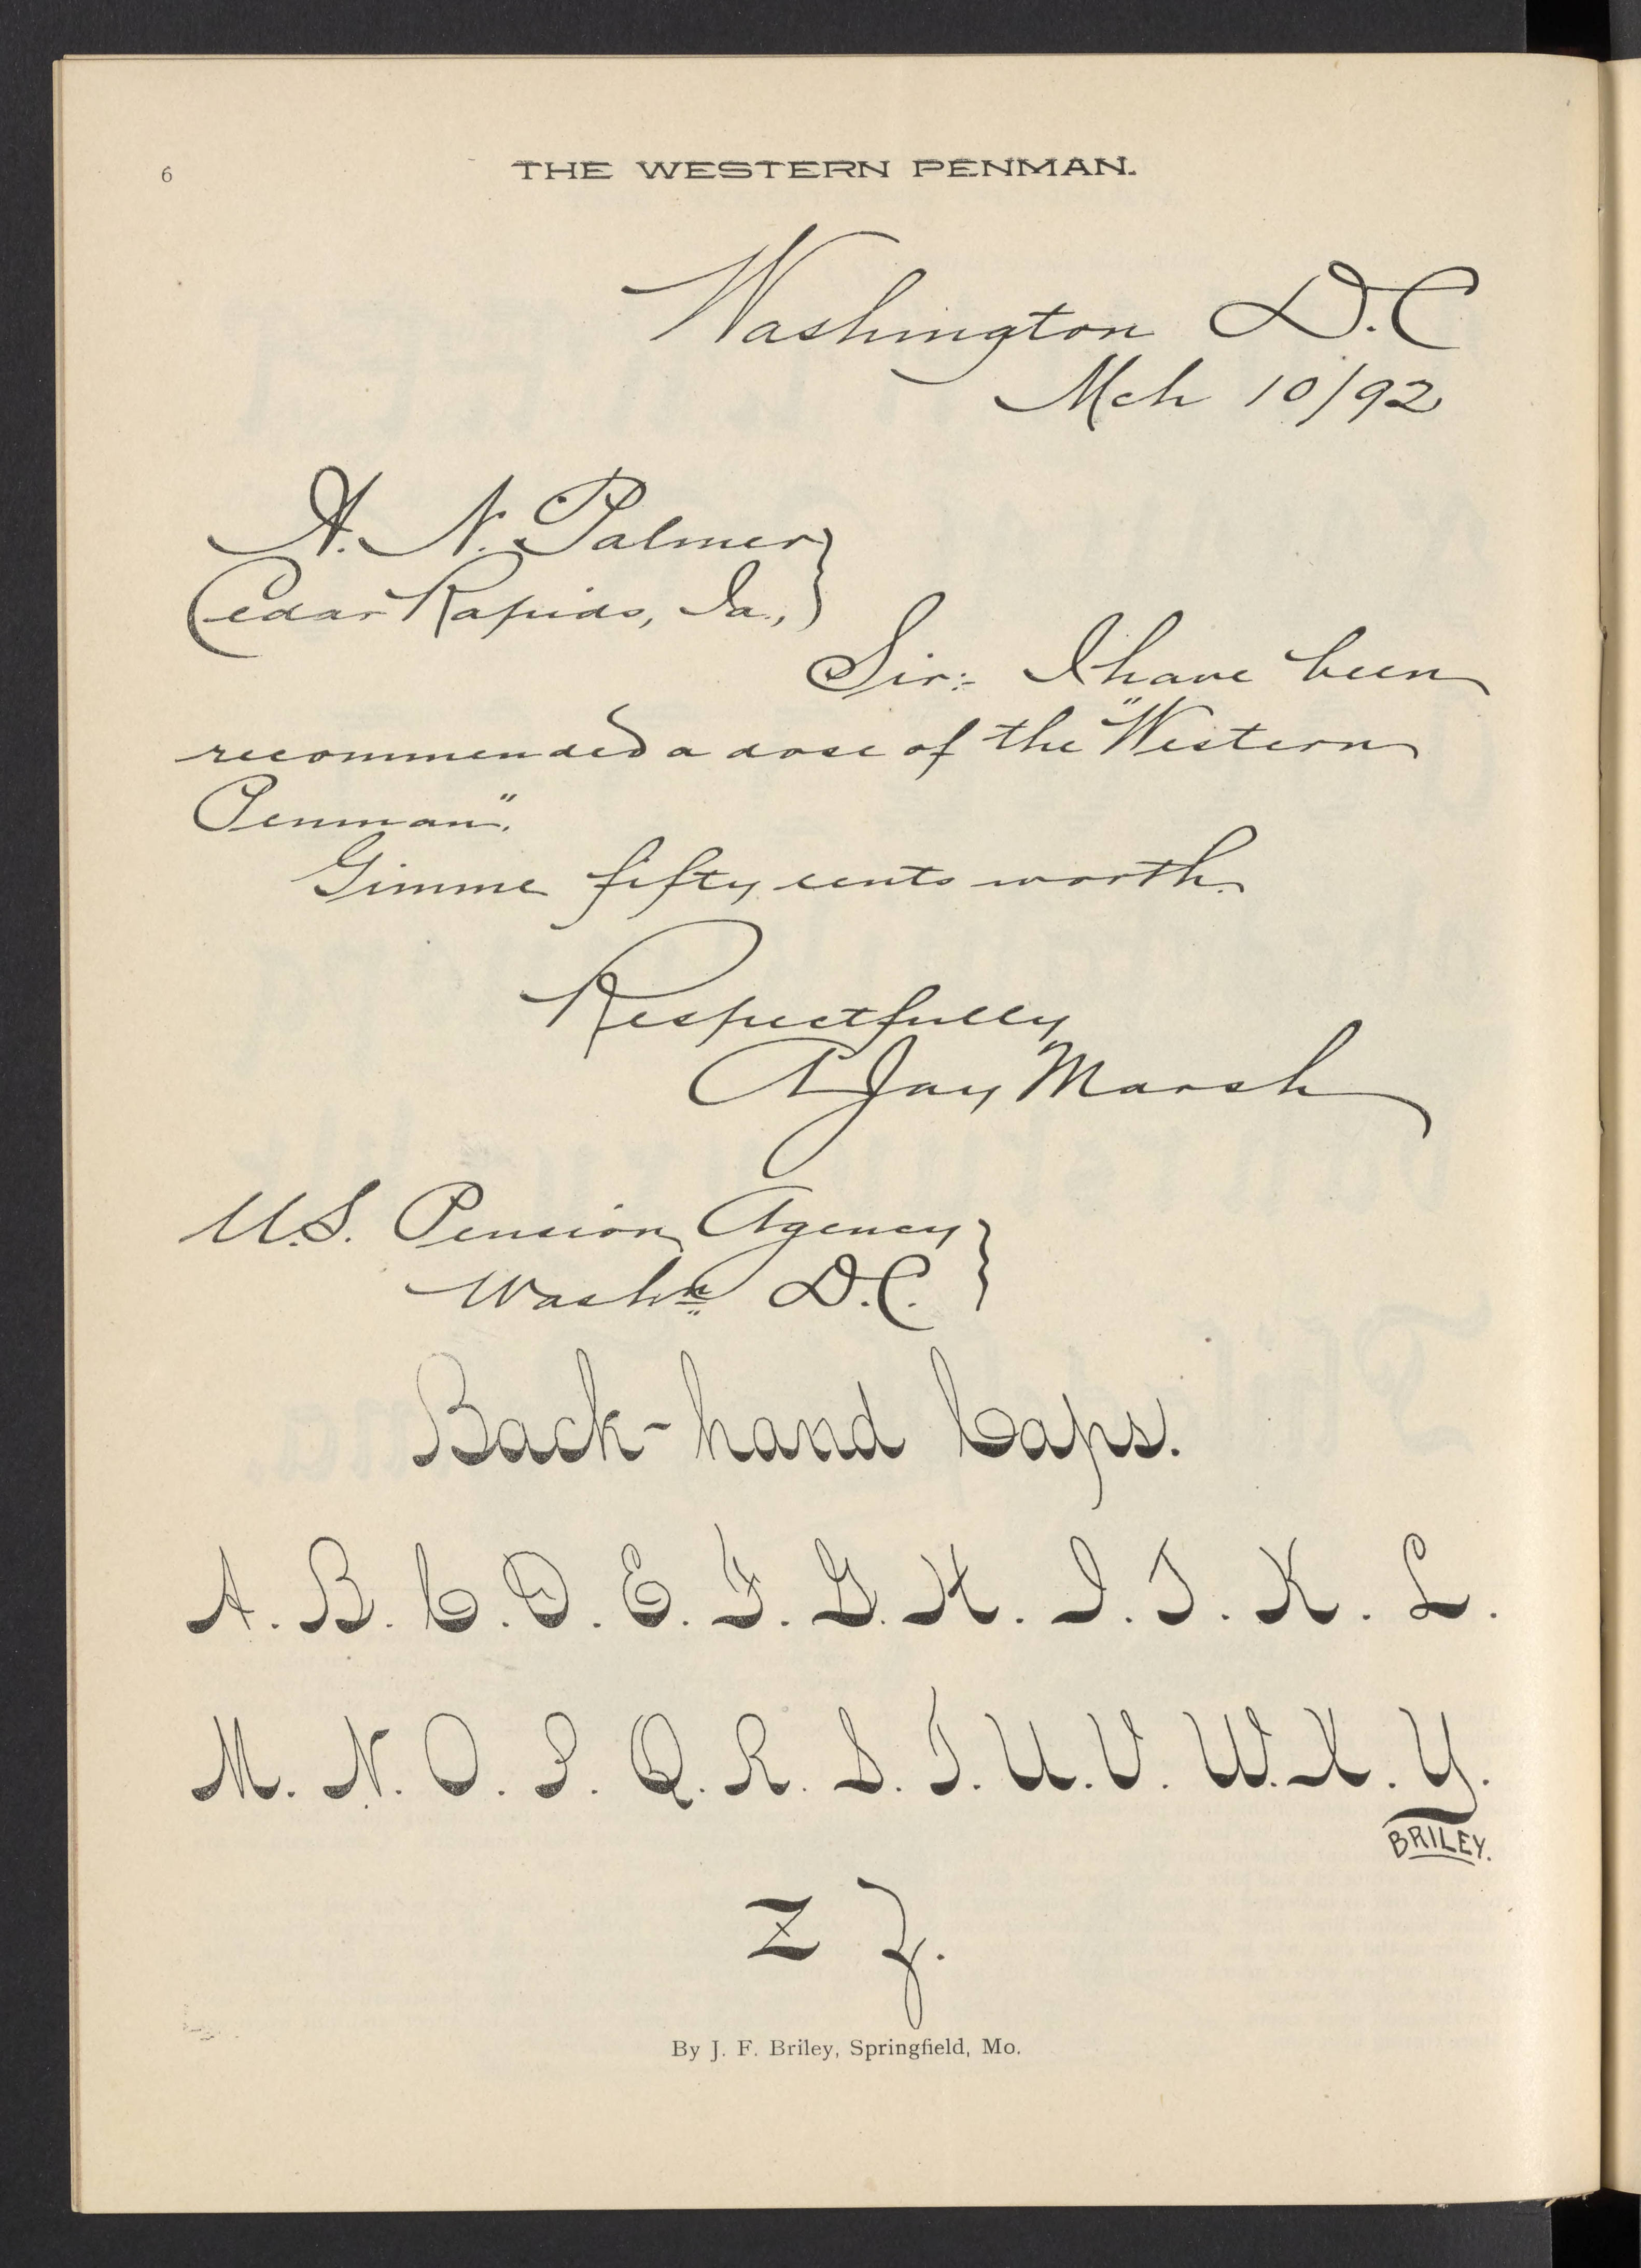 6
THE WESTERN PENMAN.
Washington D.C
Mch 10/92
A. N. Palmer
Cedar Rapids, Ia.,
Sir:- I have been
recommended a dose of the "Western
Penman".
Gimme fifty cents worth.
Respectfully
A Jay Marsh
U.S. Pension Agency
Washn D.C.
Back-hand Caps.
A. B. C. D. E. F. G. H. I. J. K. L.
M. N. O. P. Q. R. S. T. U. V. W. X. Y.
BRILEY.
Z Z.
By J. F. Briley, Springfield, Mo.